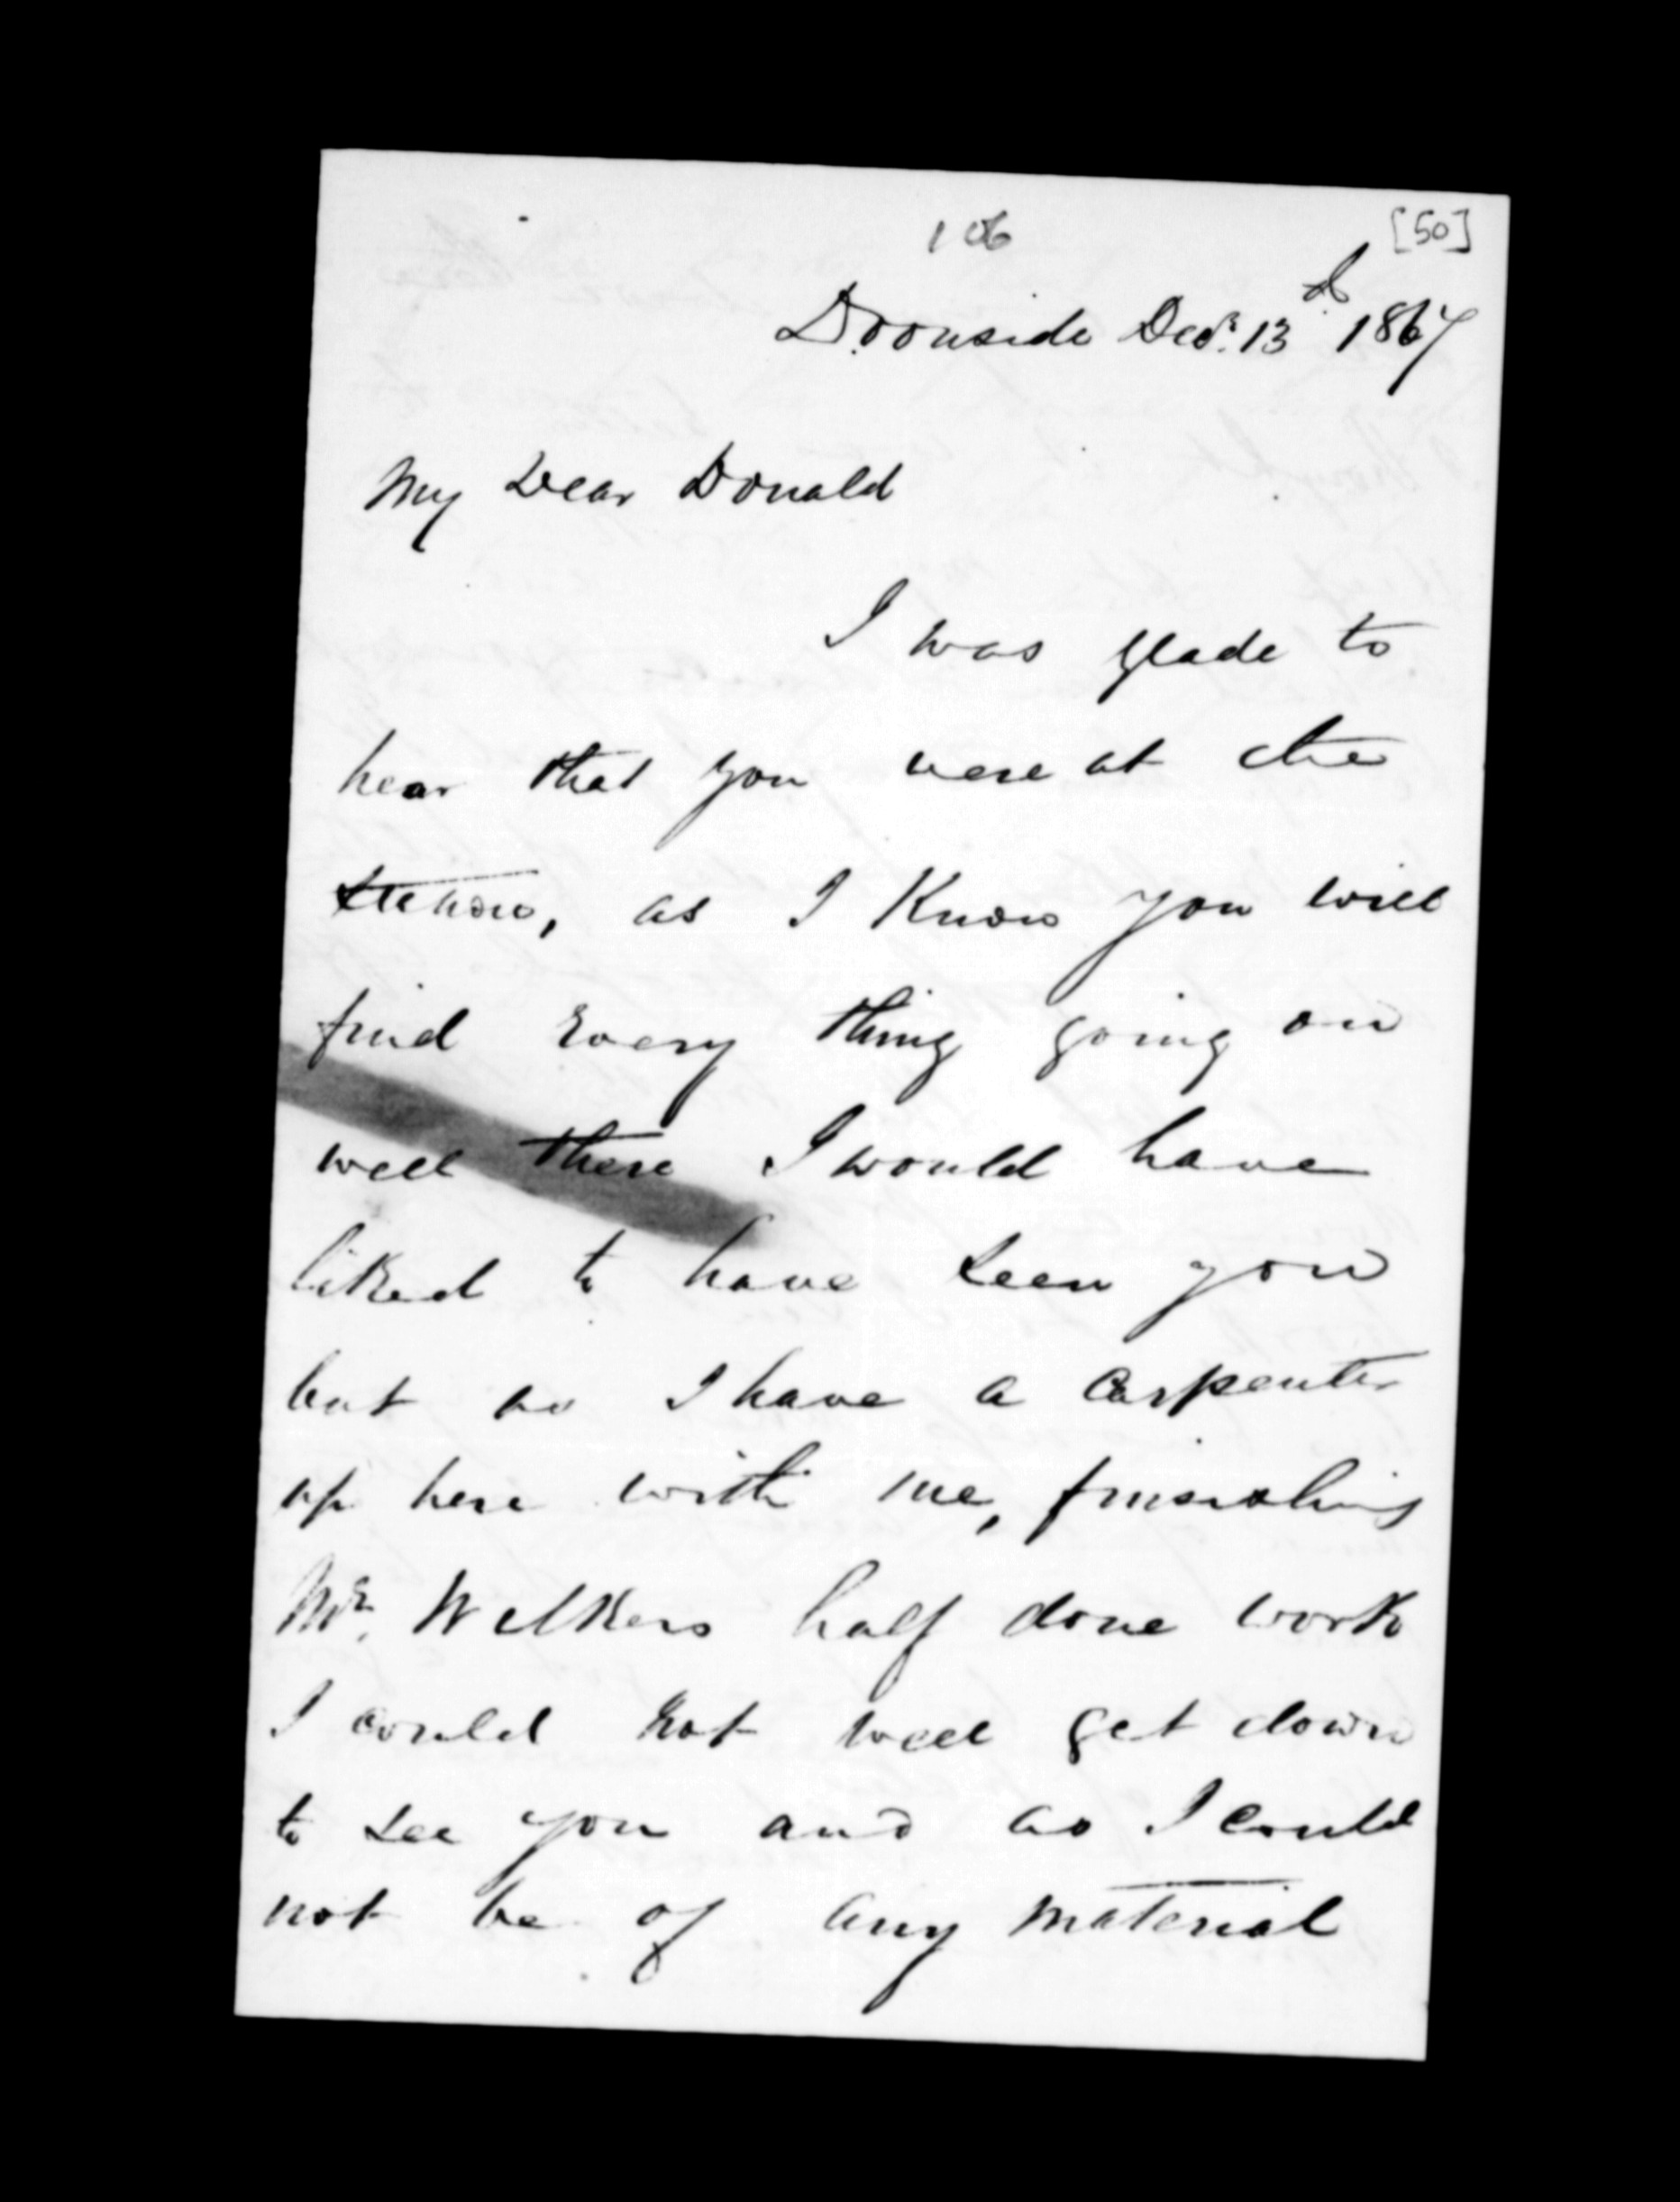 106 [50]
Doonside Decr. 13th 1867
My Dear Donald
I was glade to
hear that you were at the
Station, as I Know you will
find Every thing going on
well there I would have
liked to have seen you
but as I have a Carpenter
up here with me, finishing
Mr. Walkers half done work
I could not well get down
to see you and as I could
not be of any material